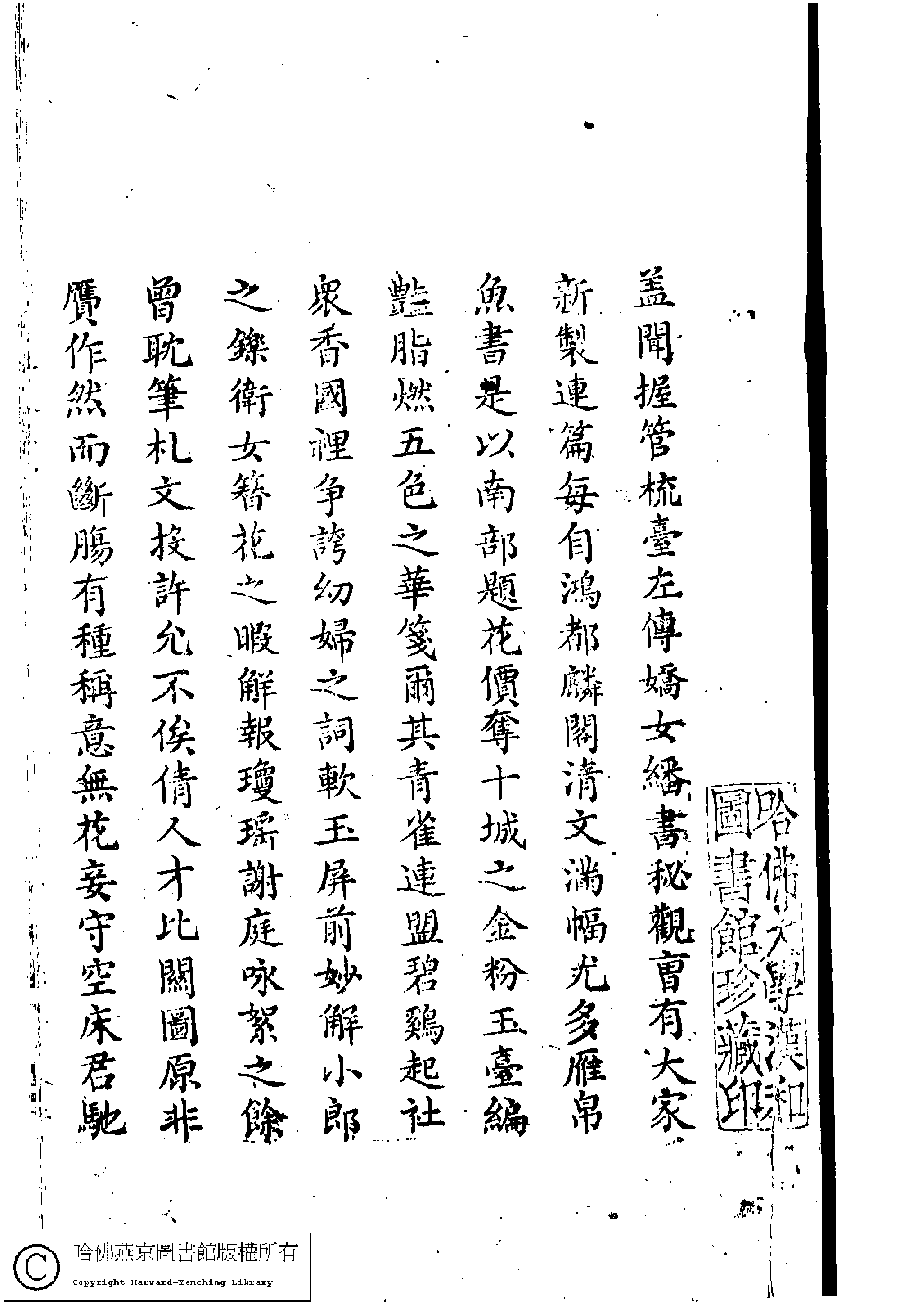 蓋聞握管梳臺左傅嬌女繙書秘觀曹有大家
新製連篇每自鴻都麟閣清文滿幅尤多雁帛
魚書是以南部題花價奪十城之金粉玉臺編
豔脂燃五色之華箋爾其青雀連盟碧鷄起社
衆香國裡爭誇幼婦之詞軟玉屏前妙解小郎
之鑠衛女簪花之暇解報瓊瑤謝庭咏絮之餘
曾耽筆札文投許允不俟倩人才比關圖原非
贋作然而斷腸有種稱意無花妾守空床君馳
哈佛大學漢和
圖書館珍藏印
哈佛燕京圖書館版權所有
Copyright Harvard-Yenching Library